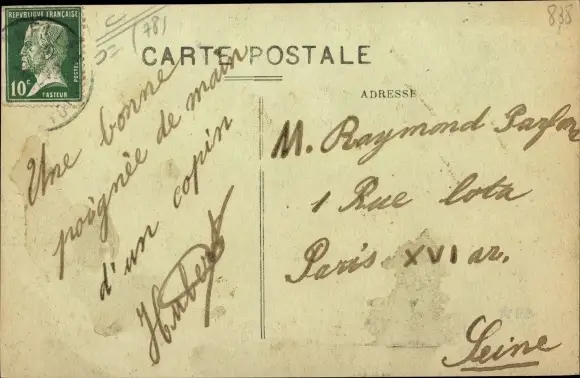 RÉPUBLIQUE FRANÇAISE
POSTES
10c
PASTEUR
(78)
838
CARTE POSTALE
ADRESSE
Une bonne
poignée de main
d'un copin
Hubert
M. Raymond
1 Rue Cota
Paris XVI ar.
Seine